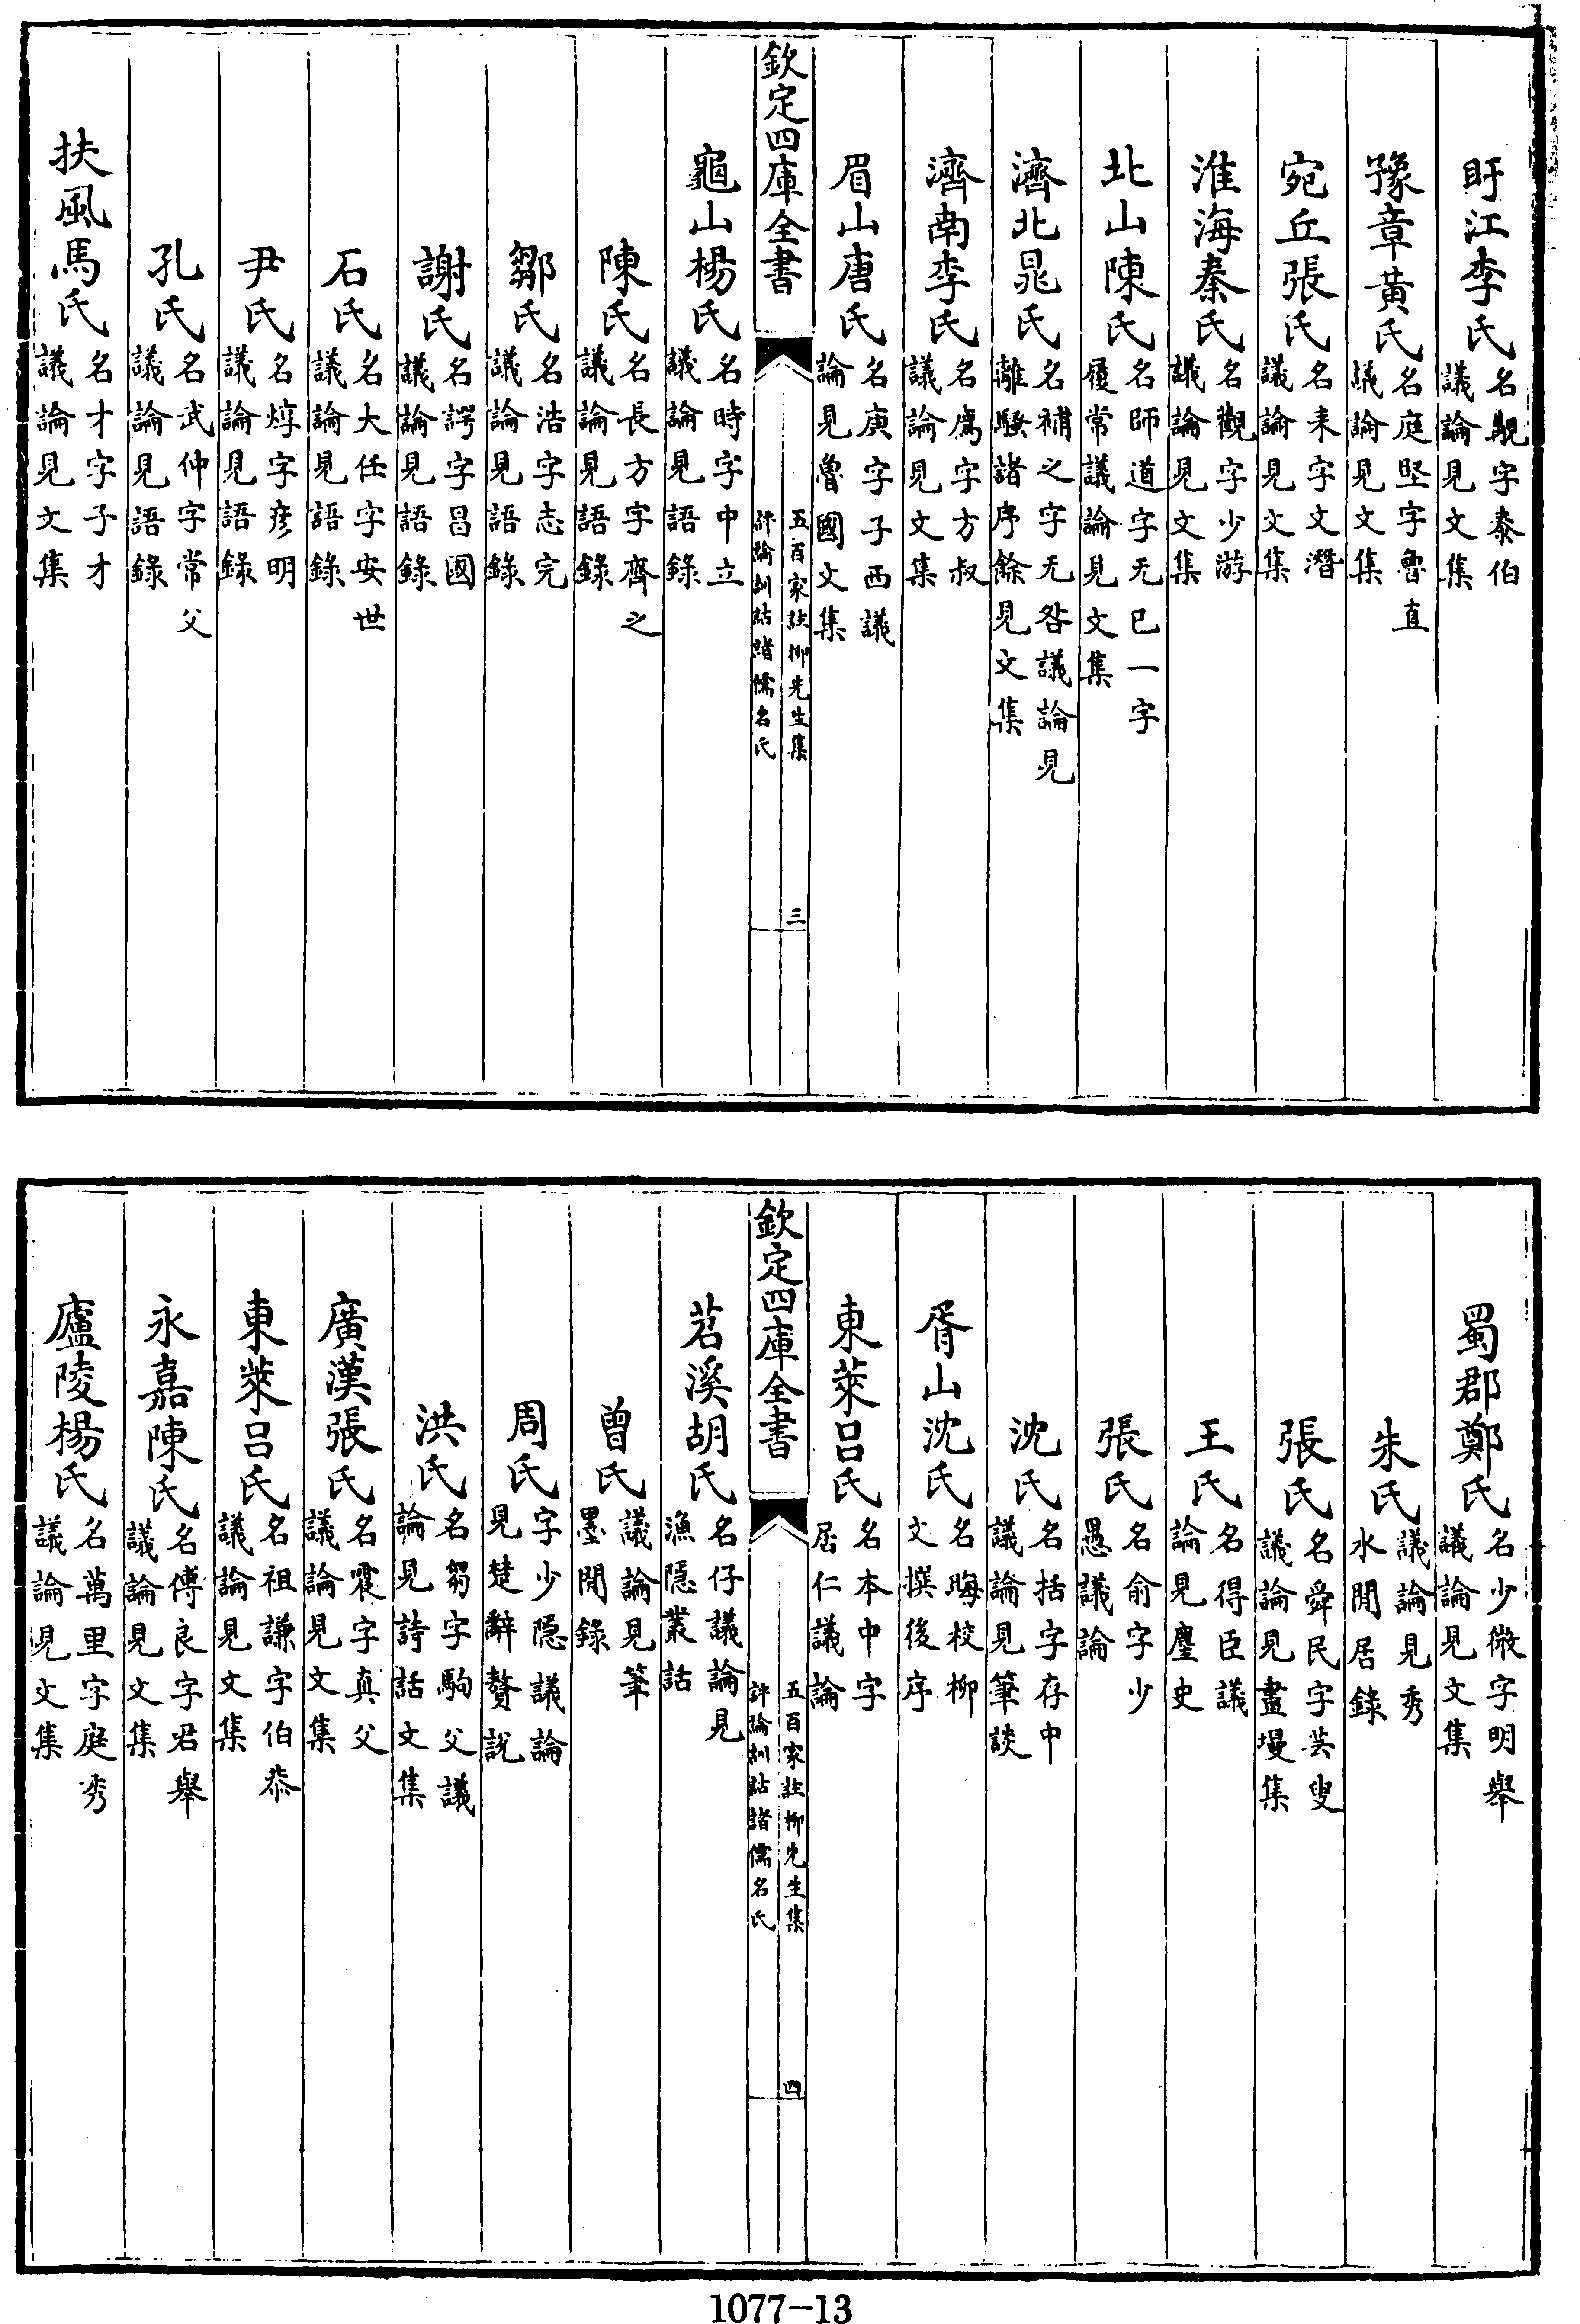 盱江李氏名覯字泰伯議論見文集
豫章黃氏名庭堅字魯直議論見文集
宛丘張氏名耒字文潛議論見文集
淮海秦氏名觀字少游議論見文集
北山陳氏名師道字无已一字履常議論見文集
濟北晁氏名補之字无咎議論見離騷諸序餘見文集
濟南李氏名廌字方叔議論見文集
眉山唐氏名庚字子西議論見魯國文集
欽定四庫全書
五百家註柳先生集
評論訓詁諸儒名氏
三
龜山楊氏名時字中立議論見語錄
陳氏名長方字齊之議論見語錄
鄒氏名浩字志完議論見語錄
謝氏名諤字昌國議論見語錄
石氏名大任字安世議論見語錄
尹氏名焞字彥明議論見語錄
孔氏名武仲字常父議論見語錄
扶風馬氏名才字子才議論見文集
蜀郡鄭氏名少微字明舉議論見文集
朱氏議論見秀水閒居錄
張氏名舜民字芸叟議論見畫墁集
王氏名得臣議論見麈史
張氏名俞字少愚議論
沈氏名括字存中議論見筆談
胥山沈氏名晦校柳文撰後序
東萊呂氏名本中字居仁議論
欽定四庫全書
五百家註柳先生集
評論訓詁諸儒名氏
四
苕溪胡氏名仔議論見漁隱叢話
曾氏議論見筆墨閒錄
周氏字少隱議論見楚辭贅說
洪氏名芻字駒父議論見詩話文集
廣漢張氏名震字真父議論見文集
東萊呂氏名祖謙字伯恭議論見文集
永嘉陳氏名傅良字君舉議論見文集
廬陵楊氏名萬里字庭秀議論見文集
1077-13